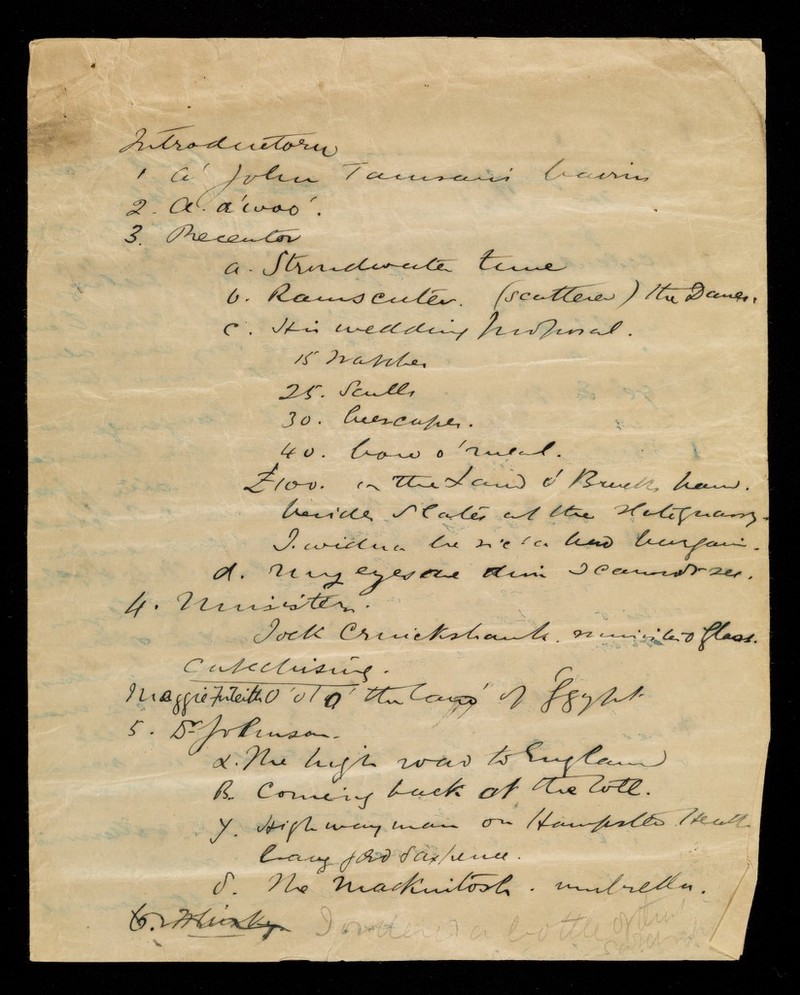 Introductory
1 A' John Tamson's bairns
2. A. a' woo'.
3. Precentor
a. Stroudwater tune
b. Ramscuter. (scatterer) the Danes.
c. His wedding proposal.
15 watches
25. Sculls
30. beescapes.
40. bow o' meal.
£100. in the Land o' Bank haw.
besides Slates at the slatequarry.
I widna be sic a bad bargain.
d. my eyes are dim I cannot see.
4. Minister.
Jock Cruickshank. minister o Glass.
Catechising.
Maggie O' o' the land of Egypt
5. Dr Johnson.
α. The high road to England
β. Coming back at the toll.
γ. Highwayman on Hampsted Heath
bang for saxpence.
δ. The Mackintosh. umbrella.
6. Whisky. I ordered a bottle of this